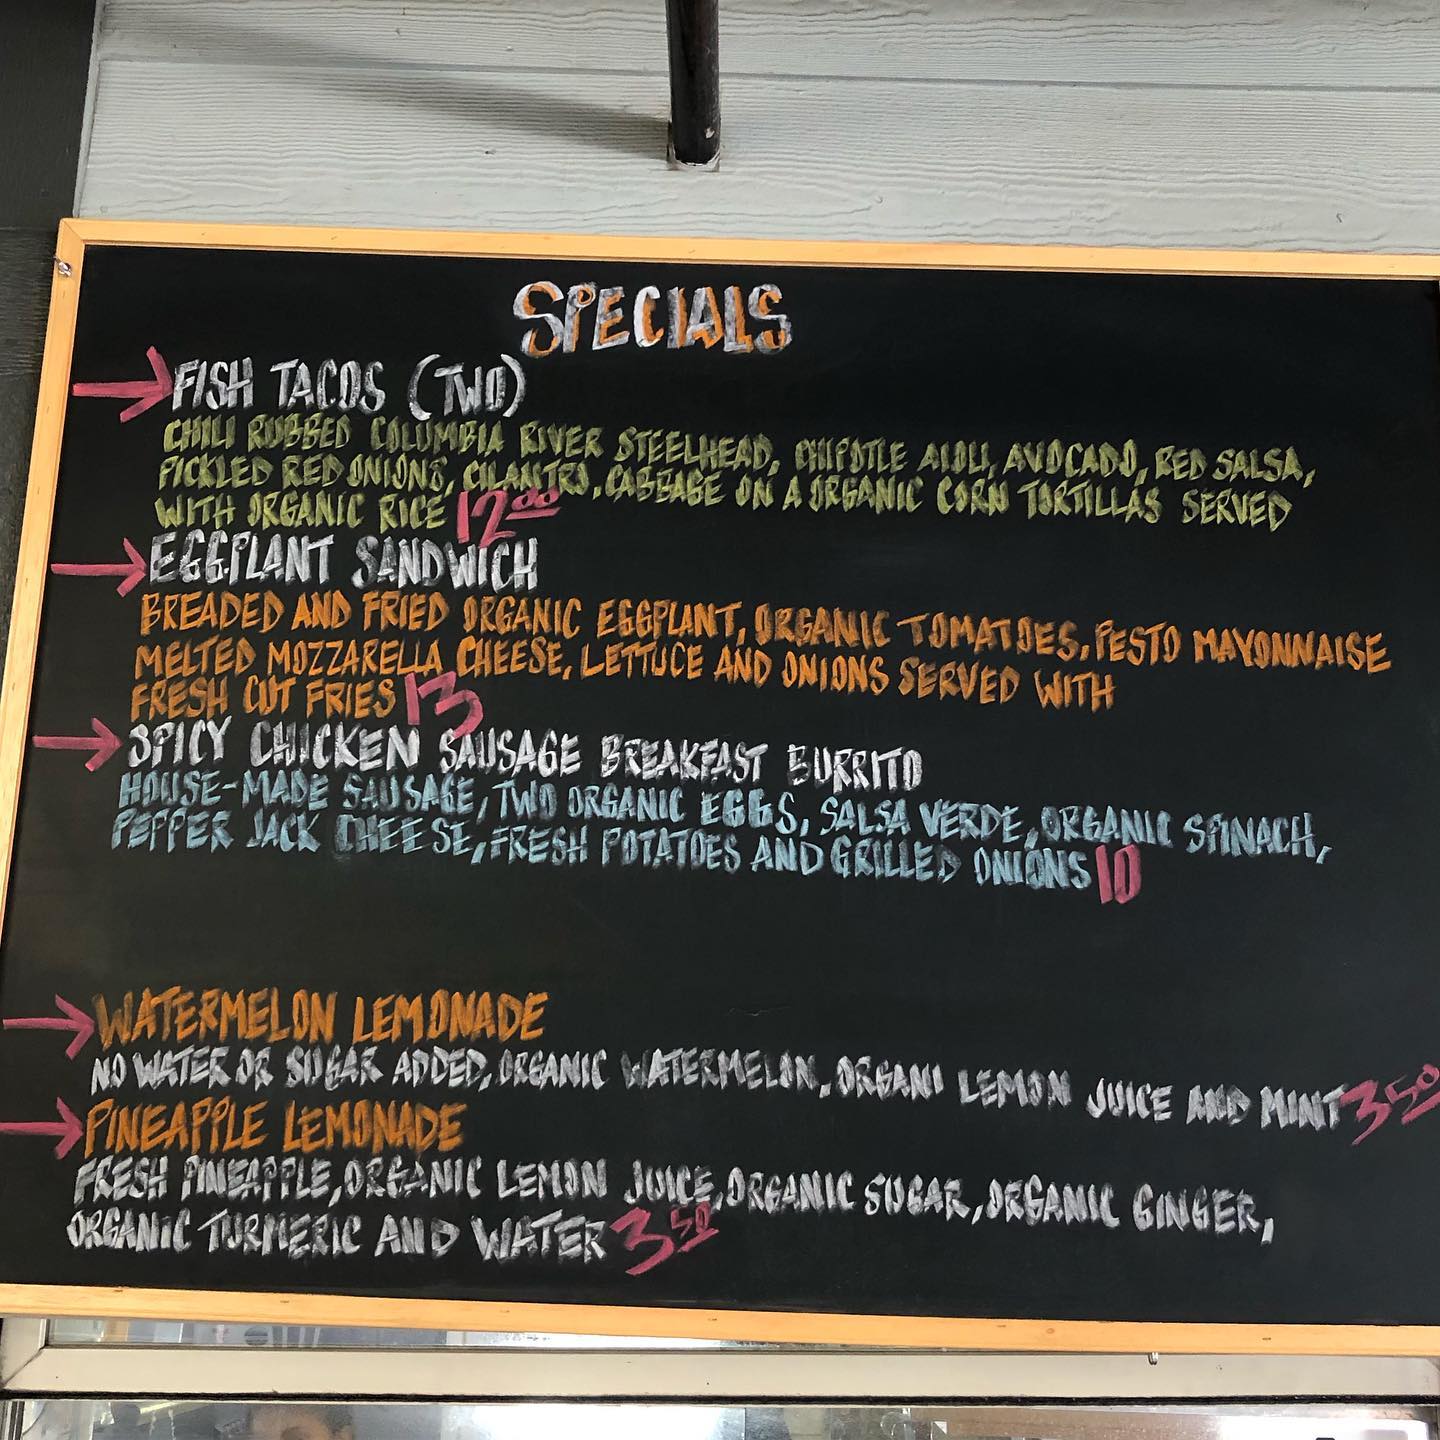 SPECIALS
FISH TACOS (TWO)
CHILI RUBBED COLUMBIA RIVER STEELHEAD, CHIPOTLE AIOLI, AVOCADO, RED SALSA,
PICKLED RED ONIONS, CILANTRO, CABBAGE ON A ORGANIC CORN TORTILLAS SERVED
WITH ORGANIC RICE 12.00
EGGPLANT SANDWICH
BREADED AND FRIED ORGANIC EGGPLANT, ORGANIC TOMATOES, PESTO MAYONNAISE
MELTED MOZZARELLA CHEESE, LETTUCE AND ONIONS SERVED WITH
FRESH CUT FRIES 13
SPICY CHICKEN SAUSAGE BREAKFAST BURRITO
HOUSE-MADE SAUSAGE, TWO ORGANIC EGGS, SALSA VERDE, ORGANIC SPINACH,
PEPPER JACK CHEESE, FRESH POTATOES AND GRILLED ONIONS 10
WATERMELON LEMONADE
NO WATER OR SUGAR ADDED, ORGANIC WATERMELON, ORGANI LEMON JUICE AND MINT 3.50
PINEAPPLE LEMONADE
FRESH PINEAPPLE, ORGANIC LEMON JUICE, ORGANIC SUGAR, ORGANIC GINGER,
ORGANIC TURMERIC AND WATER 3.50